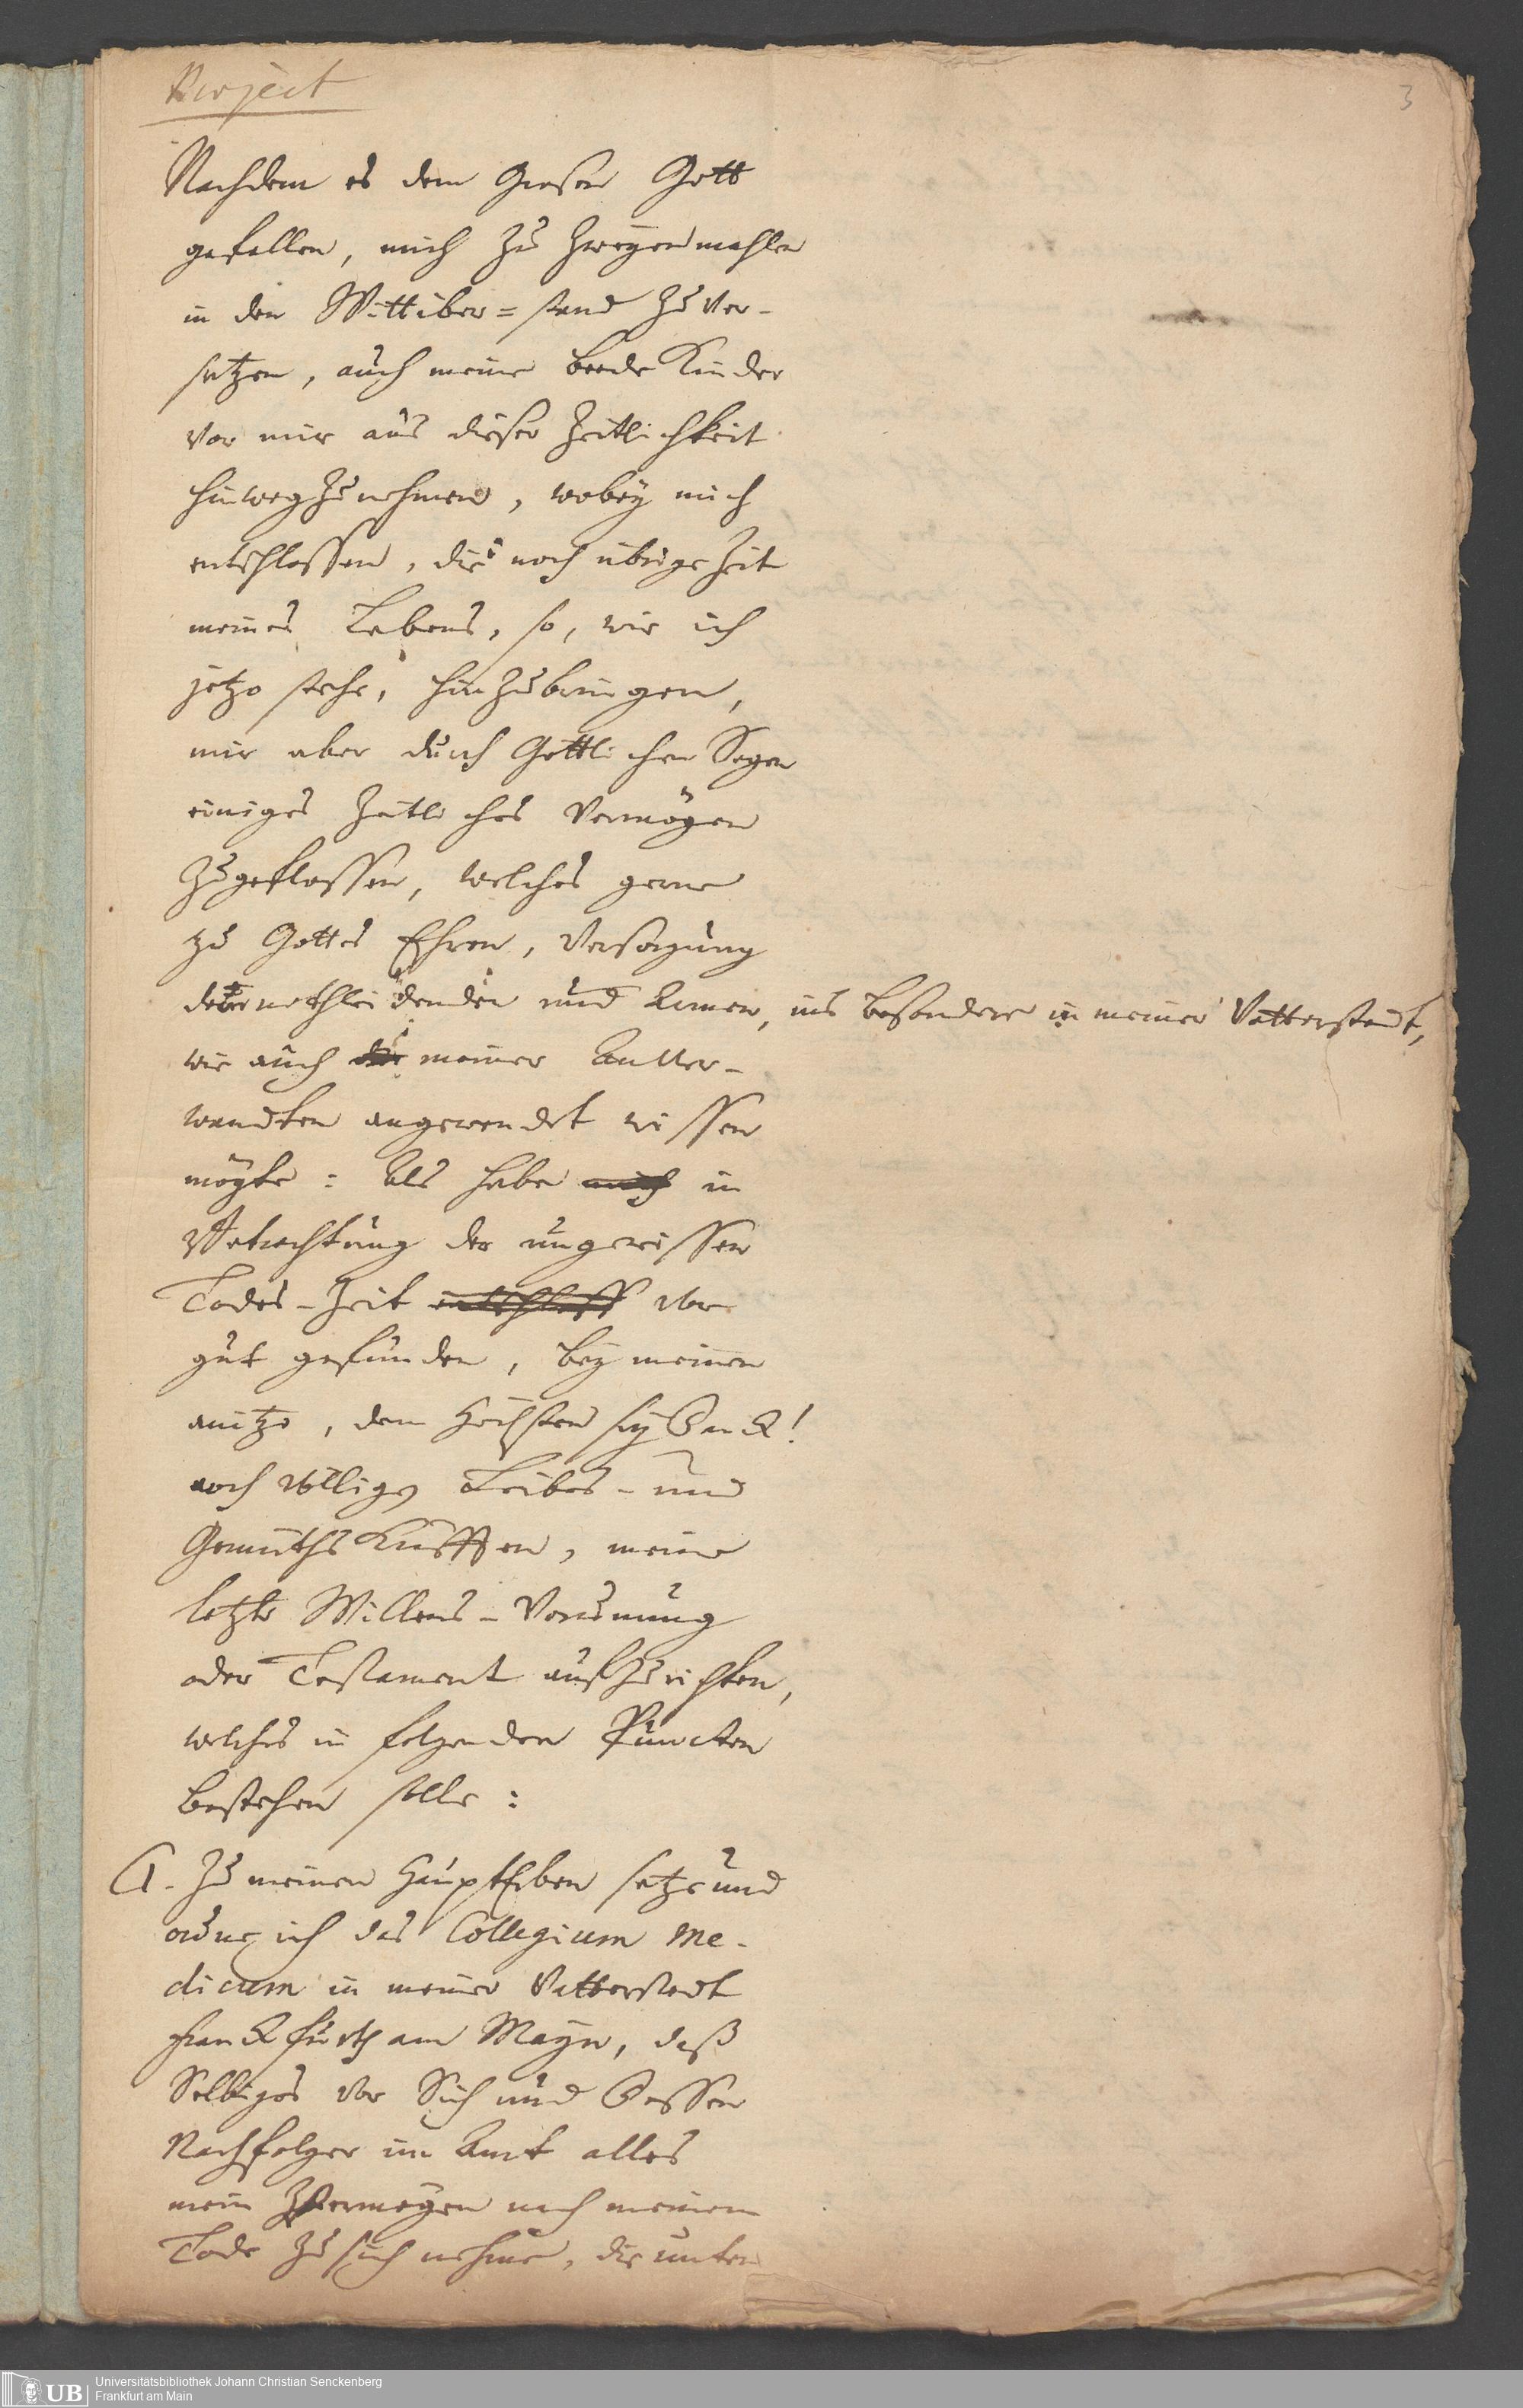 Project
3
Nachdem es dem Grosen Gott
gefallen, mich zu zweyen mahlen
in den Wittiber=stand zu ver-
setzen, auch meine beede Kinder
vor mir aus dieser Zeitlichkeit
hinwegzunehmen, wobey mich
entschlossen, die noch übrige Zeit
meines Lebens, so, wie ich
jetzo stehe, hinzubringen,
mir aber durch Göttlichen Segen
einiges Zeitliches Vermögen
zugeflossen, welches gerne
zu Gottes Ehren, Versorgung
nothleidenden und Armen, ins besondere in meiner Vatterstadt,
wie auch meiner Anver-
wandten angewendet wissen
mögte: Als habe mich in
Betrachtung der ungewissen
Todes-Zeit entschloss vor
gut gefunden, bey meinen
anitzo, dem Höchsten sey Danck!
noch völligen Leibes- und
Gemüths Kräfften, meine
letzte Willens-
oder Testament aufzurichten,
welches in folgenden Puncten
bestehen solle:
1. Zu meinen Haupt Erben setze und
ordne ich das Collegium Me-
dicum in meiner Vatterstadt
Franckfurth am Mayn, daß
Selbiges vor Sich und Dessen
Nachfolger im Amt alles
mein Vermögen nach meinem
Tode zu sich nehme, die unten
Universitätsbibliothek Johann Christian Senckenberg
Frankfurt am Main
UB